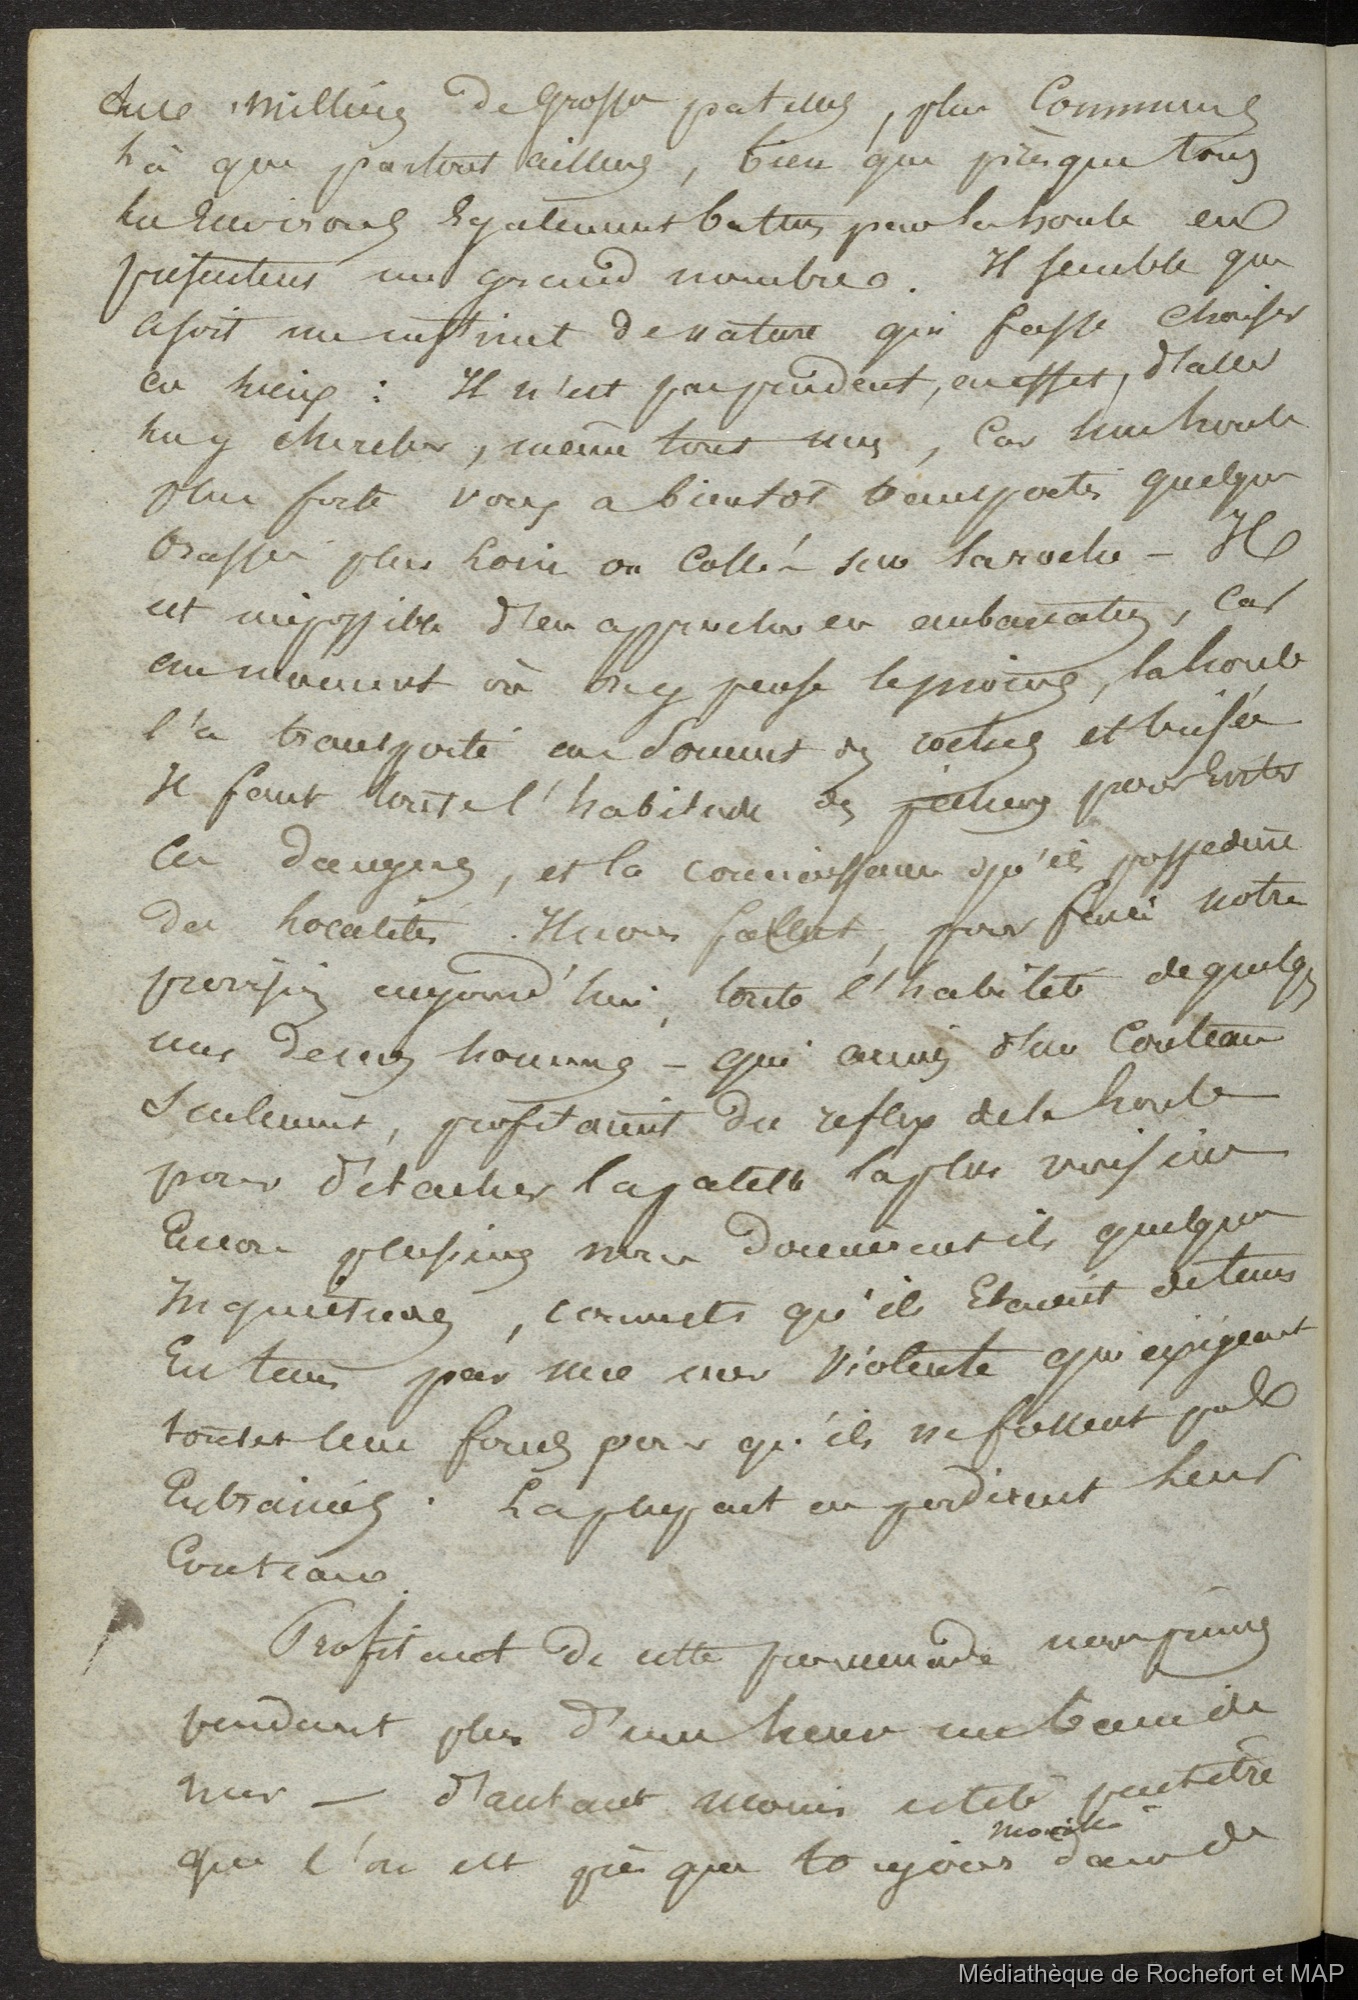 milliers de grosses patelles, plus communes
là que partout ailleurs, bien que presque tous
les Environs Egalement battus par la houle en
présentent un grand nombre. Il semble que
ce soit un instinct de nature qui fasse choisir
ce lieux : Il n'est pas prudent, en effet, d'aller
les y chercher, même tout nus, car une houle
plus forte vous a bientôt transportés quelques
brasses plus loin ou collé sur la roche – Il
est impossible d'en approcher en embarcation, car
au moment où on y pense le moins, la houle
l'a transporté au sommet des roches et brisée
Il faut toute l'habitude des pêcheurs pour Eviter
ces dangers, et la connaissance qu'ils possedent
des localités. Il nous fallut, pour faire notre
provision aujourd'hui, toute l'habileté de quelques
uns de nos hommes – qui armés d'un Couteau
Seulement, profitaient du reflux de la houle
pour détacher la patelle la plus voisine
Encore plusieurs nous donnèrent ils quelques
Inquiétudes, couverts qu'ils Etaient de tems
En tems par une mer Violente qui exigeait
toutes leurs forces pour qu'ils ne fussent pas
Entrainés. La plupart en perdirent leurs
Couteaux.
Profitant de cette promenade nous primes
pendant plus d'une heure un bain de
mer – d'autant moins peutêtre
que l'on est presque toujours mouillé dans de
Médiathèque de Rochefort et MAP